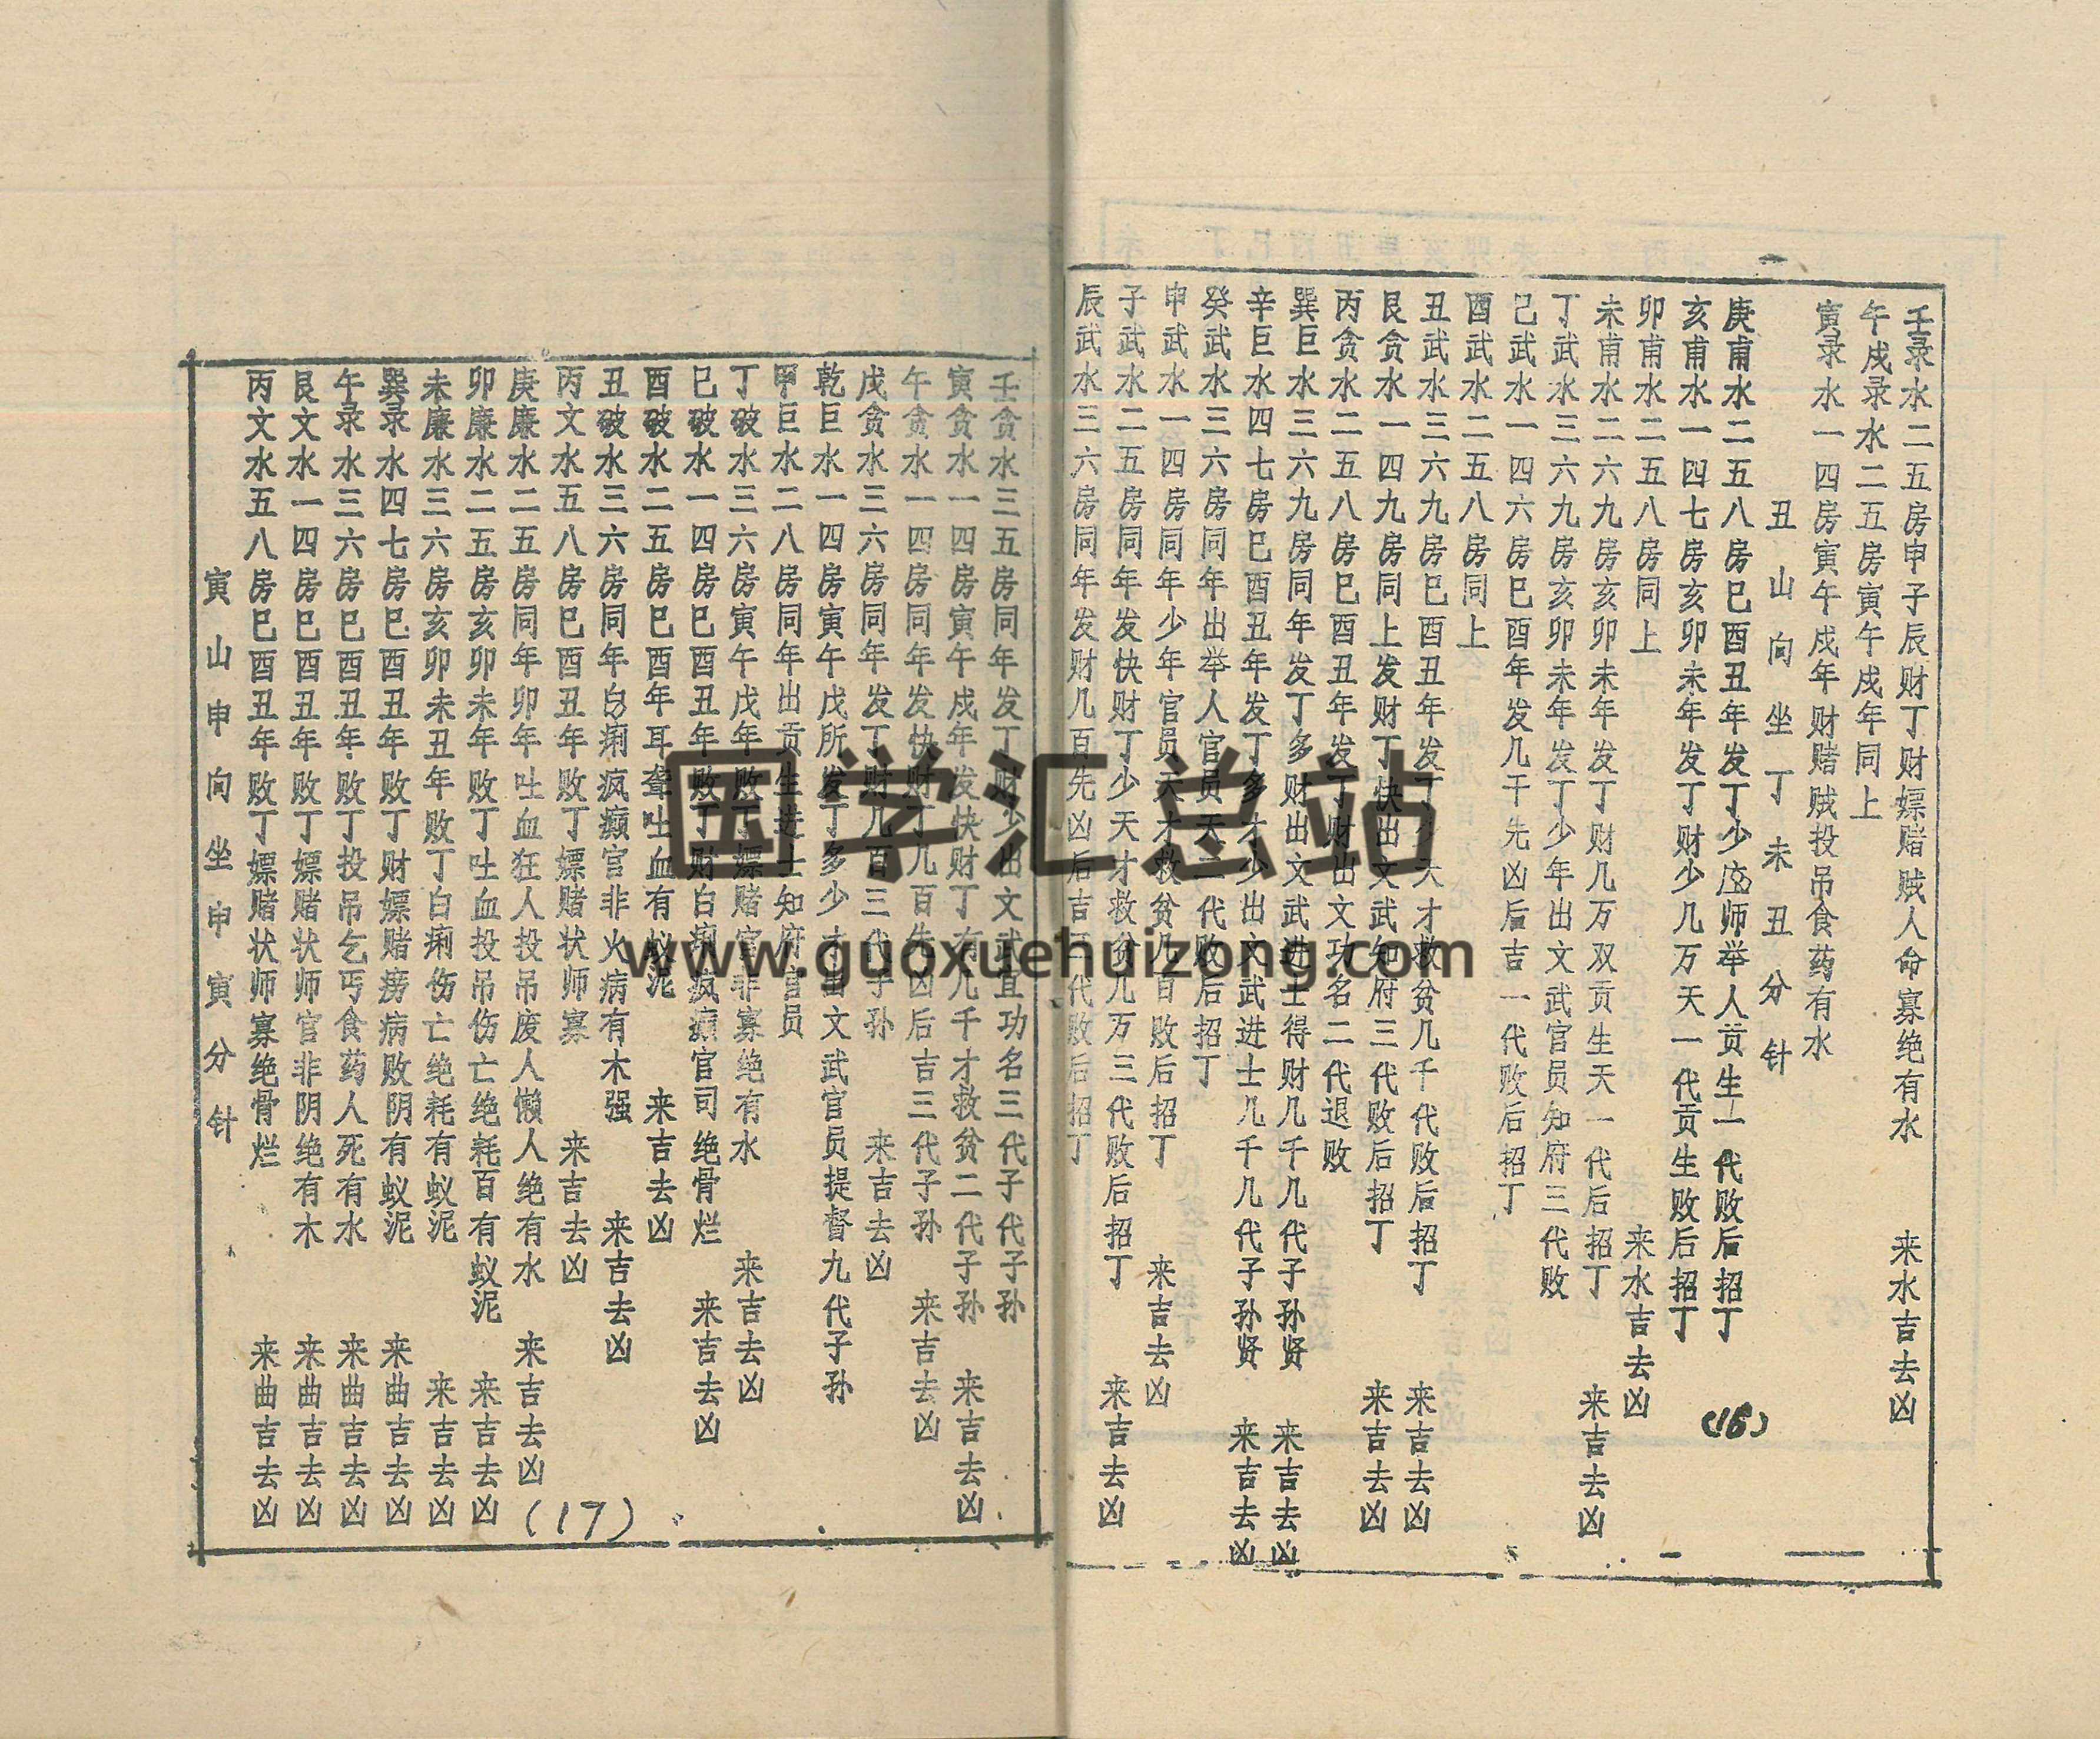 壬录水二五房申子辰财丁财嫖赌贼人命寡绝有水 来水吉去凶
午戍录水二五房寅午戍年同上
寅录水一四房寅午戍年财赌贼投吊食药有水
丑山向坐丁未丑分针
庚甫水二五八房巳酉丑年发丁少师举人贡生一代败后招丁
亥甫水一四七房亥卯未年发丁财少几万天一代贡生败后招丁
(16)
卯甫水二五八房同上 来水吉去凶
未甫水二六九房亥卯未年发丁财几万双贡生天一代后招丁 来吉去凶
丁武水三六九房亥卯未年发丁少年出文武官员知府三代败
己武水一四六房巳酉年发几千先凶后吉一代败后招丁
酉武水二五八房同上
丑武水三六九房巳酉丑年发丁 天才救贫几千代败后招丁 来吉去凶
艮贪水一四九房同上发财丁快出文武知府三代败后招丁 来吉去凶
丙贪水二五八房巳酉丑年发丁财出文功名二代退败
巽巨水三六九房同年发丁多财出文武进士得财几千几代子孙贤 来吉去凶
辛巨水四七房巳酉丑年发丁多才少出文武进士几千几代子孙贤 来吉去凶
癸武水三六房同年出举人官员天二代败后招丁
申武水一四房同年少年官员天才救贫几百败后招丁 来吉去凶
子武水二五房同年发快财丁少天才救贫几万三代败后招丁 来吉去凶
辰武水三六房同年发财几百先凶后吉 代败后招丁
壬贪水三五房同年发丁财少出文武宜功名三代子代子孙
寅贪水一四房寅午戍年发快财丁有几千才救贫二代子孙 来吉去凶
午贪水一四房同年发快财丁几百先凶后吉三代子孙 来吉去凶
戍贪水三六房同年发丁财几百三代子孙 来吉去凶
乾巨水一四房寅午戍所发丁多少才出文武官员提督九代子孙
甲巨水二八房同年出贡生进士知府官员
丁破水三六房寅午戍年败丁嫖赌官非寡绝有水 来吉去凶
巳破水一四房巳酉丑年败丁财白痢疯癫官司绝骨烂 来吉去凶
酉破水二五房巳酉年耳聋吐血有蚁泥 来吉去凶
丑破水三六房同年白痢疯癫官非火病有木强 来吉去凶
丙文水五八房巳酉丑年败丁嫖赌状师寡 来吉去凶
庚廉水二五房同年卯年吐血狂人投吊废人懒人绝有水 来吉去凶
(17)
卯廉水二五房亥卯未年败丁吐血投吊伤亡绝耗百有蚁泥 来吉去凶
未廉水三六房亥卯未丑年败丁白痢伤亡绝耗有蚁泥 来吉去凶
巽录水四七房巳酉丑年败丁财嫖赌痨病败阴有蚁泥 来曲吉去凶
午录水三六房巳酉丑年败丁投吊乞丐食药人死有水 来曲吉去凶
艮文水一四房巳酉丑年败丁嫖赌状师官非阴绝有木 来曲吉去凶
丙文水五八房巳酉丑年败丁嫖赌状师寡绝骨烂 来曲吉去凶
寅山申向坐申寅分针
国学汇总站
www.guoxuehuizong.com